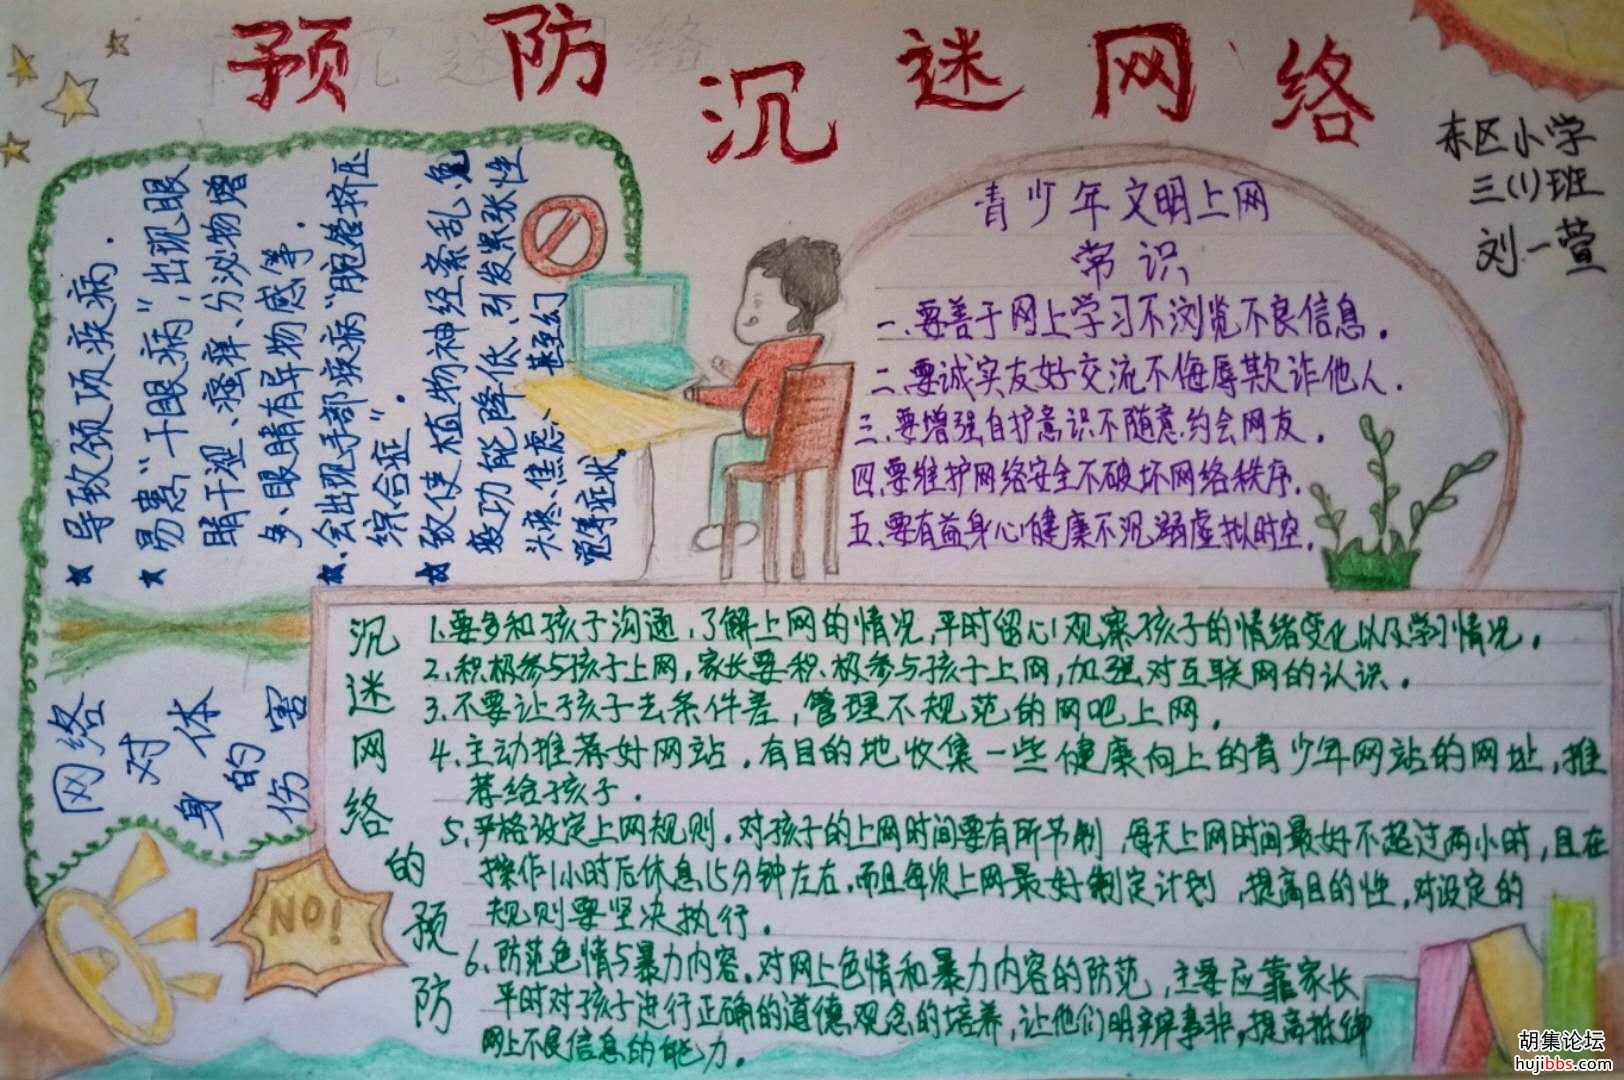 预防沉迷网络
东区小学
三(1)班
刘一萱
网络
对身体
的伤害
★导致颈项疾病.
★易患"干眼病",出现眼
睛干涩、瘙痒、分泌物增
多、眼睛有异物感等.
★会出现手部疾病"腕管挤压
综合症"。
★致使植物神经紊乱,免
疫功能降低、引发紧张性
头疼、焦虑、甚至幻
觉等症状。
青少年文明上网
常识
一、要善于网上学习不浏览不良信息。
二、要诚实友好交流不侮辱欺诈他人.
三、要增强自护意识不随意约会网友.
四、要维护网络安全不破坏网络秩序.
五、要有益身心健康不沉溺虚拟时空.
沉迷网络的预防
1.要多和孩子沟通,了解上网的情况,平时留心观察孩子的情绪变化以及学习情况。
2.积极参与孩子上网,家长要积极参与孩子上网,加强对互联网的认识。
3.不要让孩子去条件差,管理不规范的网吧上网。
4.主动推荐好网站.有目的地收集一些健康向上的青少年网站的网址,推
荐给孩子.
5.严格设定上网规则.对孩子的上网时间要有所节制,每天上网时间最好不超过两小时,且在
操作1小时后休息15分钟左右.而且每次上网最好制定计划,提高目的性,对设定的
规则要坚决执行。
6、防范色情与暴力内容.对网上色情和暴力内容的防范,主要应靠家长
平时对孩子进行正确的道德观念的培养,让他们明辨事非,提高抵御
网上不良信息的能力。
NO!
胡集论坛
hujibbs.com